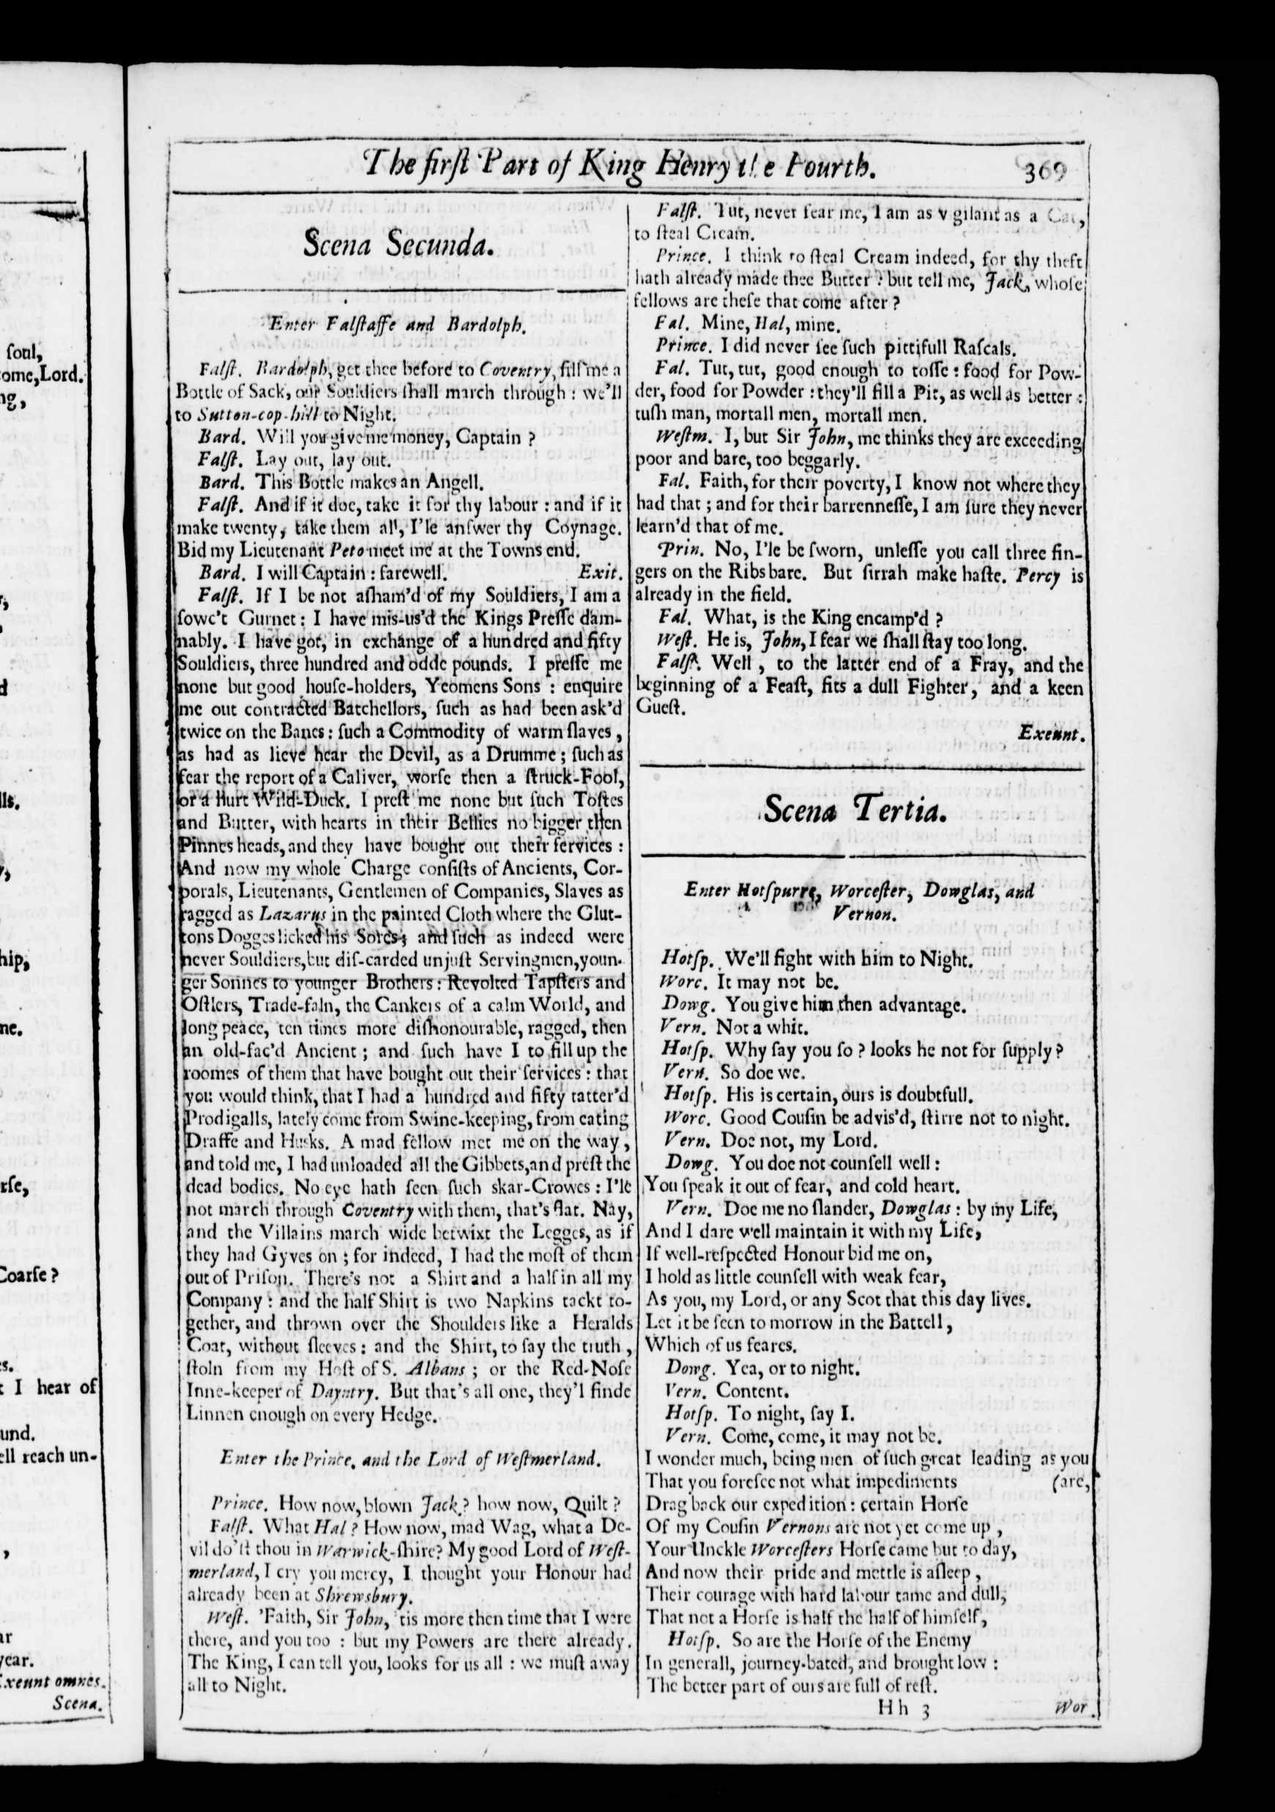 soul,
ome, Lord.
ng,
d
lls.
y,
hip,
ne.
rse,
Coarse?
es.
t I hear of
und.
ell reach un-
ar
year.
Exeunt omnes.
Scena.
The first Part of King Henry the Fourth. 369
Scena Secunda.
Enter Falstaffe and Bardolph.
Falst. Bardolph, get thee before to Coventry, fill me a
Bottle of Sack, our Souldiers shall march through : we'll
to Sutton-cop-hill to Night.
Bard. Will you give me money, Captain ?
Falst. Lay out, lay out.
Bard. This Bottle makes an Angell.
Falst. And if it doe, take it for thy labour : and if it
make twenty, take them all, I'le answer thy Coynage.
Bid my Lieutenant Peto meet me at the Towns end.
Bard. I will Captain : farewell. Exit.
Falst. If I be not asham'd of my Souldiers, I am a
sowc't Gurnet : I have mis-us'd the Kings Presse dam-
nably. I have got, in exchange of a hundred and fifty
Souldiers, three hundred and odde pounds. I presse me
none but good house-holders, Yeomens Sons : enquire
me out contracted Batchellors, such as had been ask'd
twice on the Banes : such a Commodity of warm slaves,
as had as lieve hear the Devil, as a Drumme ; such as
fear the report of a Caliver, worse then a struck-Fool,
or a Hurt Wild-Duck. I prest me none but such Tostes
and Butter, with hearts in their Bellies no bigger then
Pinnes heads, and they have bought out their services :
And now my whole Charge consists of Ancients, Cor-
porals, Lieutenants, Gentlemen of Companies, Slaves as
ragged as Lazarus in the painted Cloth where the Glut-
tons Dogges licked his Sores ; and such as indeed were
never Souldiers, but dis-carded unjust Servingmen, youn-
ger Sonnes to younger Brothers : Revolted Tapsters and
Ostlers, Trade-faln, the Cankers of a calm World, and
long peace, ten times more dishonourable, ragged, then
an old-fac'd Ancient ; and such have I to fill up the
roomes of them that have bought out their services : that
you would think, that I had a hundred and fifty tatter'd
Prodigalls, lately come from Swine-keeping, from eating
Draffe and Husks. A mad fellow met me on the way,
and told me, I had unloaded all the Gibbets, and prest the
dead bodies. No eye hath seen such skar-Crowes : I'le
not march through Coventry with them, that's flat. Nay,
and the Villains march wide betwixt the Legges, as if
they had Gyves on ; for indeed, I had the most of them
out of Prison. There's not a Shirt and a half in all my
Company : and the half Shirt is two Napkins tackt to-
gether, and thrown over the Shoulders like a Heralds
Coat, without sleeves : and the Shirt, to say the truth,
stoln from my Host of S. Albans ; or the Red-Nose
Inne-keeper of Dayntry. But that's all one, they'l finde
Linnen enough on every Hedge.
Enter the Prince, and the Lord of Westmerland.
Prince. How now, blown Jack ? how now, Quilt ?
Falst. What Hal ? How now, mad Wag, what a De-
vil do'st thou in Warwick-shire? My good Lord of West-
merland, I cry you mercy, I thought your Honour had
already been at Shrewsbury.
West. 'Faith, Sir John, 'tis more then time that I were
there, and you too : but my Powers are there already.
The King, I can tell you, looks for us all : we must away
all to Night.
Falst. Tut, never fear me, I am as vigilant as a Cat,
to steal Cream.
Prince. I think to steal Cream indeed, for thy theft
hath already made thee Butter : but tell me, Jack, whose
fellows are these that come after ?
Fal. Mine, Hal, mine.
Prince. I did never see such pittifull Rascals.
Fal. Tut, tut, good enough to tosse : food for Pow-
der, food for Powder : they'll fill a Pit, as well as better :
tush man, mortall men, mortall men.
Westm. I, but Sir John, me thinks they are exceeding
poor and bare, too beggarly.
Fal. Faith, for their poverty, I know not where they
had that ; and for their barrennesse, I am sure they never
learn'd that of me.
Prin. No, I'le be sworn, unlesse you call three fin-
gers on the Ribs bare. But sirrah make haste. Percy is
already in the field.
Fal. What, is the King encamp'd ?
West. He is, John, I fear we shall stay too long.
Falst. Well, to the latter end of a Fray, and the
beginning of a Feast, fits a dull Fighter, and a keen
Guest.
Exeunt.
Scena Tertia.
Enter Hotspurre, Worcester, Dowglas, and
Vernon.
Hotsp. We'll fight with him to Night.
Worc. It may not be.
Dowg. You give him then advantage.
Vern. Not a whit.
Hotsp. Why say you so ? looks he not for supply ?
Vern. So doe we.
Hotsp. His is certain, ours is doubtfull.
Worc. Good Cousin be advis'd, stirre not to night.
Vern. Doe not, my Lord.
Dowg. You doe not counsell well :
You speak it out of fear, and cold heart.
Vern. Doe me no slander, Dowglas : by my Life,
And I dare well maintain it with my Life,
If well-respected Honour bid me on,
I hold as little counsell with weak fear,
As you, my Lord, or any Scot that this day lives.
Let it be seen to morrow in the Battell,
Which of us feares.
Dowg. Yea, or to night.
Vern. Content.
Hotsp. To night, say I.
Vern. Come, come, it may not be.
I wonder much, being men of such great leading as you
That you foresee not what impediments (are,
Drag back our expedition : certain Horse
Of my Cousin Vernons are not yet come up,
Your Unckle Worcesters Horse came but to day,
And now their pride and mettle is asleep,
Their courage with hard labour tame and dull,
That not a Horse is half the half of himself,
Hotsp. So are the Horse of the Enemy
In generall, journey-bated, and brought low :
The better part of ours are full of rest.
Hh 3 Wor.